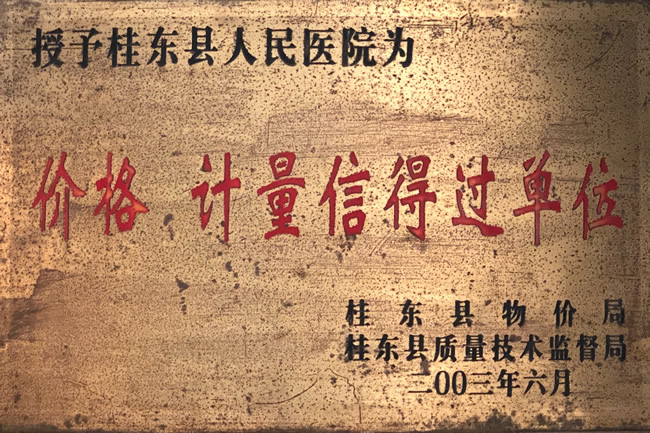 授予桂东县人民医院为
价格 计量信得过单位
桂东县物价局
桂东县质量技术监督局
二00三年六月